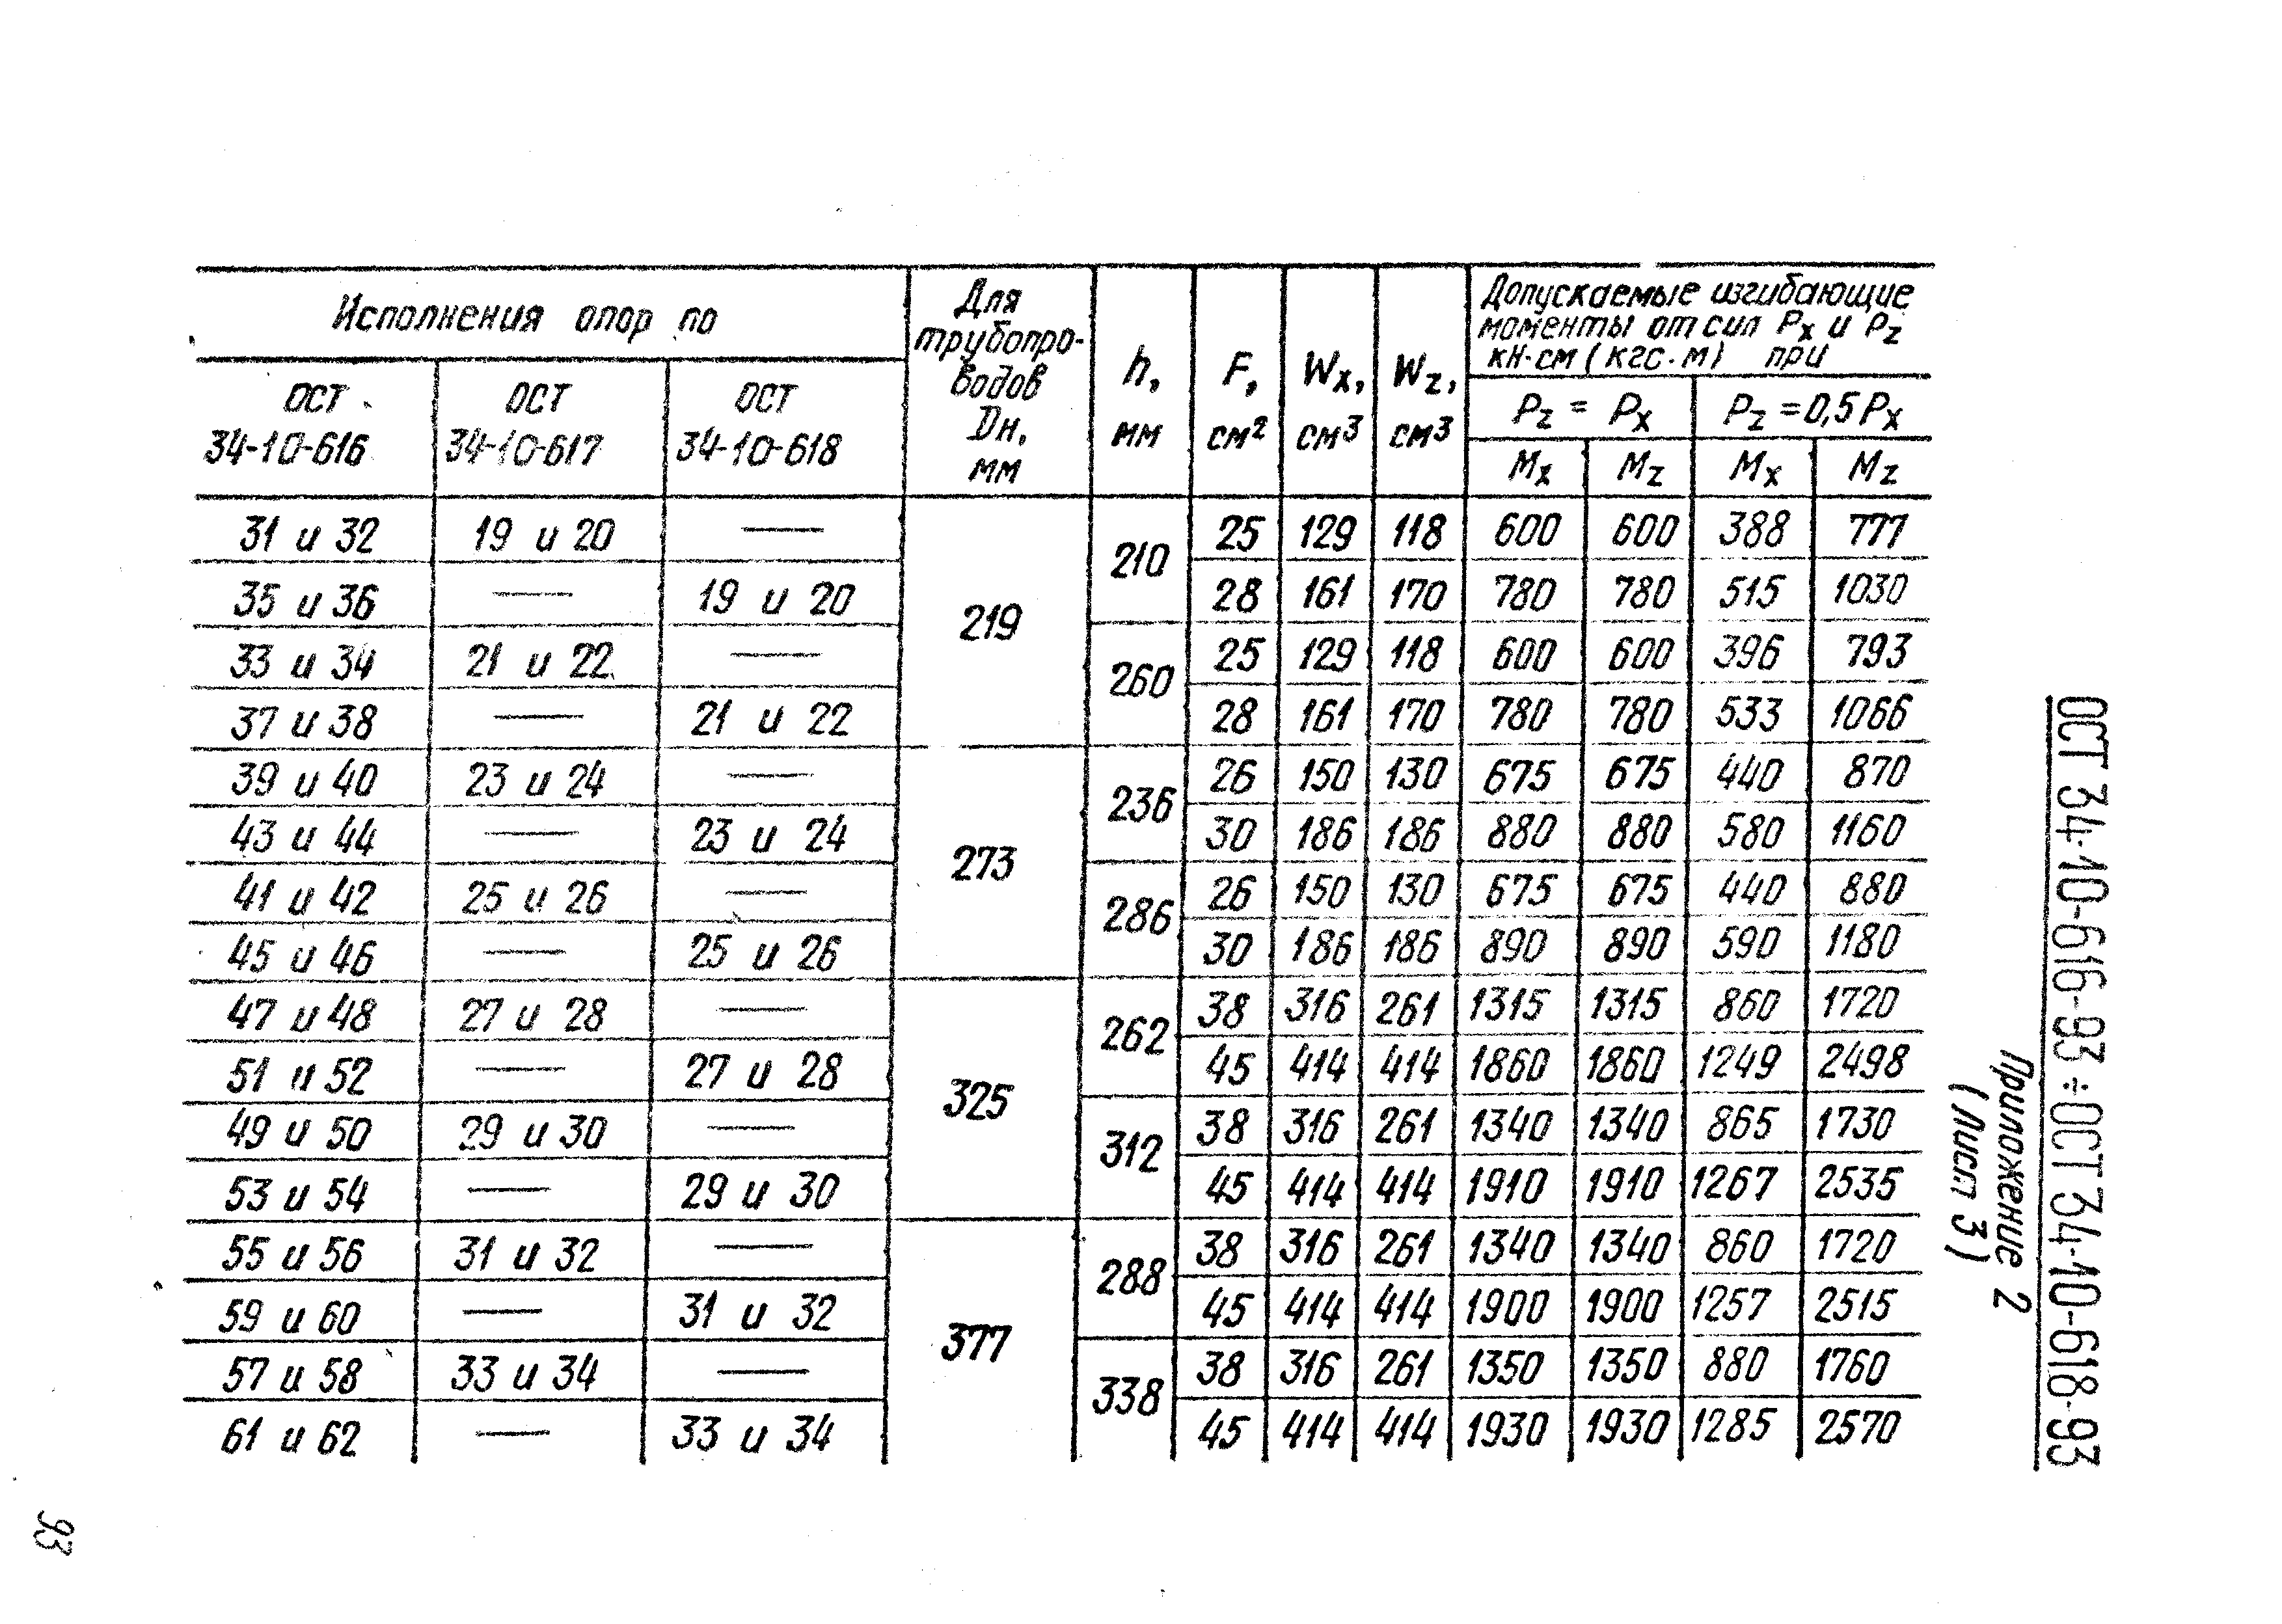 Исполнения опор по
Для трубопро-
водов
Dн,
мм
h,
мм
F,
см²
Wx,
см³
Wz,
см³
Допускаемые изгибающие
моменты от сил Px и Pz
кН·см (кгс.м) при
ОСТ
34-10-616
ОСТ
34-10-617
ОСТ
34-10-618
Pz = Px
Pz = 0,5 Px
Mx Mz Mx Mz
31 и 32 19 и 20 — 219 210 25 129 118 600 600 388 777
35 и 36 — 19 и 20 28 161 170 780 780 515 1030
33 и 34 21 и 22 — 260 25 129 118 600 600 396 793
37 и 38 — 21 и 22 28 161 170 780 780 533 1066
39 и 40 23 и 24 — 273 236 26 150 130 675 675 440 870
43 и 44 — 23 и 24 30 186 186 880 880 580 1160
41 и 42 25 и 26 — 286 26 150 130 675 675 440 880
45 и 46 — 25 и 26 30 186 186 890 890 590 1180
47 и 48 27 и 28 — 325 262 38 316 261 1315 1315 860 1720
51 и 52 — 27 и 28 45 414 414 1860 1860 1249 2498
49 и 50 29 и 30 — 312 38 316 261 1340 1340 865 1730
53 и 54 — 29 и 30 45 414 414 1910 1910 1267 2535
55 и 56 31 и 32 — 377 288 38 316 261 1340 1340 860 1720
59 и 60 — 31 и 32 45 414 414 1900 1900 1257 2515
57 и 58 33 и 34 — 338 38 316 261 1350 1350 880 1760
61 и 62 — 33 и 34 45 414 414 1930 1930 1285 2570
ОСТ 34-10-616-93 ÷ ОСТ 34-10-618-93
Приложение 2
(Лист 3)
93